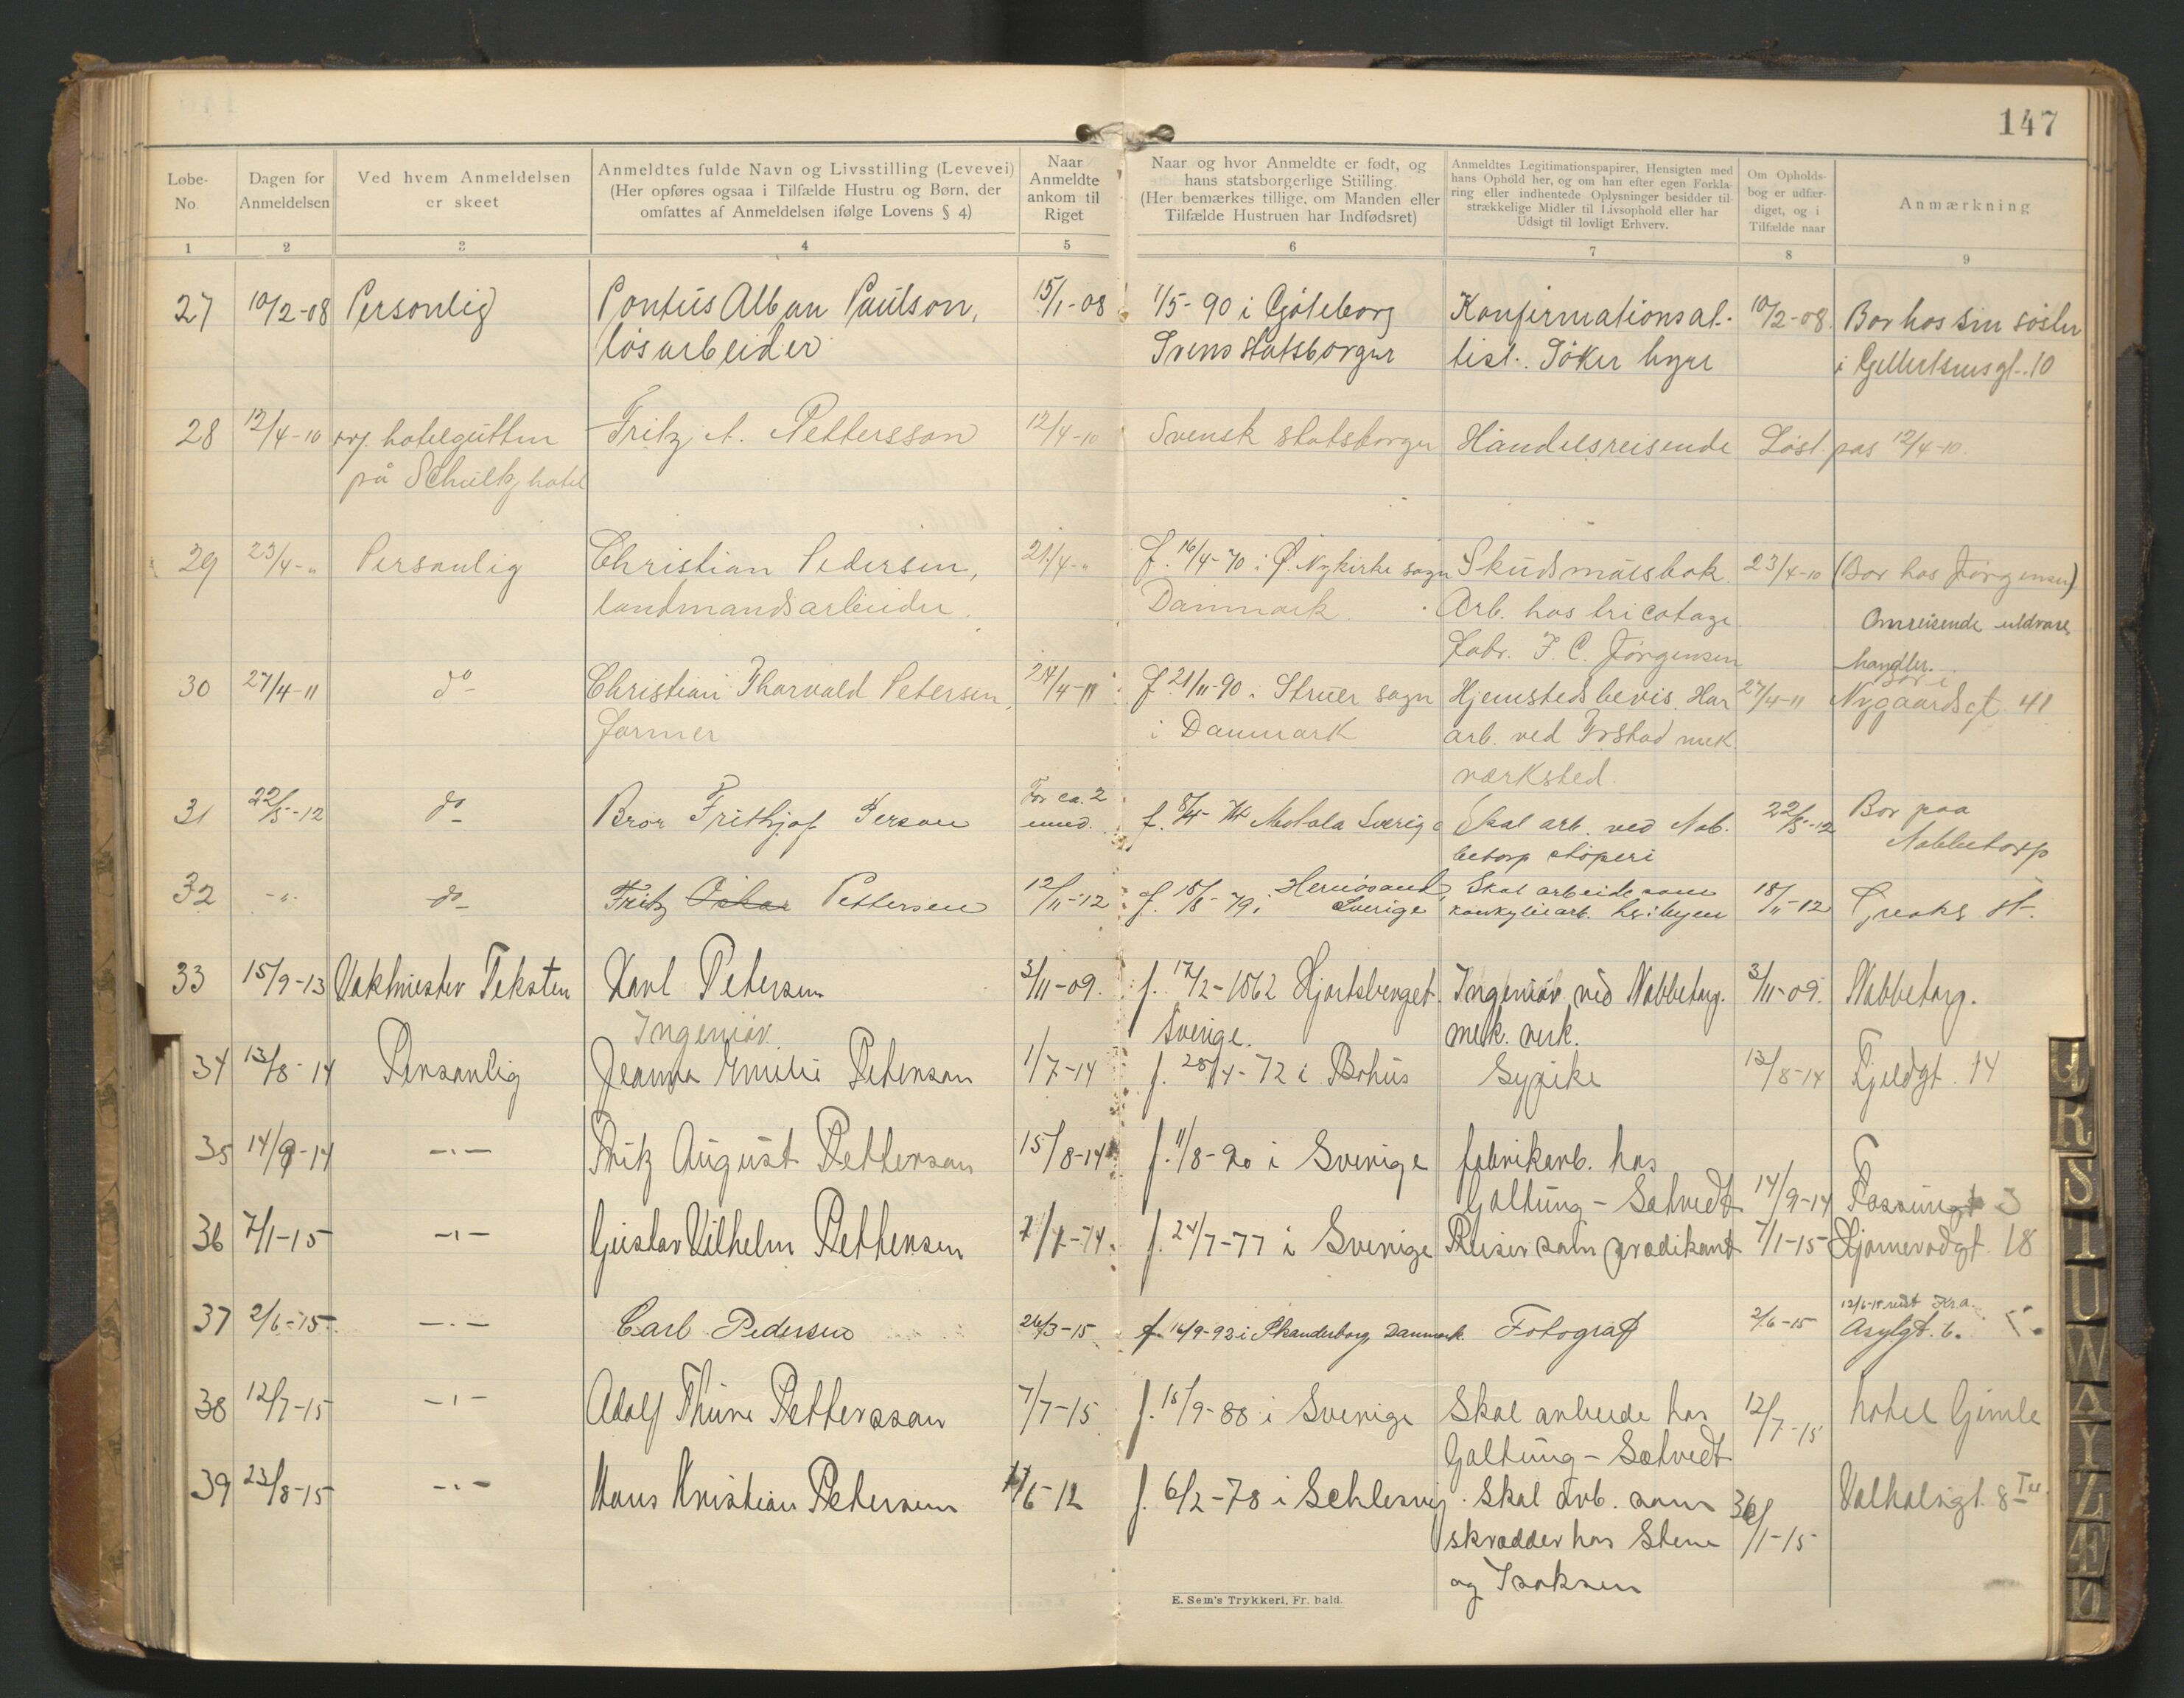 147
Løbe-No.
Dagen for Anmeldelsen
Ved hvem Anmeldelsen er skeet
Anmeldtes fulde Navn og Livsstilling (Levevei)
(Her opføres ogsaa i Tilfælde Hustru og Børn, der
omfattes af Anmeldelsen ifølge Lovens § 4)
Naar Anmeldte ankom til Riget
Naar og hvor Anmeldte er født, og
hans statsborgerlige Stilling.
(Her bemærkes tillige, om Manden eller
Tilfælde Hustruen har Indfødsret)
Anmeldtes Legitimationspapirer, Hensigten med
hans Ophold her, og om han efter egen Forkla-
ring eller indhentede Oplysninger besidder til-
strækkelige Midler til Livsophold eller har
Udsigt til lovligt Erhverv.
Om Opholds-
bog er udfær-
diget, og i
Tilfælde naar
Anmærkning
1 2 3 4 5 6 7 8 9
27 10/2-08 Personlig Pontus Alban Paulson, 15/1-08 1/5-90 i Gøteborg Konfirmationsat- 10/2-08. Bor hos sin søster
løsarbeider Svensk statsborger test. Søker hyre i Gellertsensgt. 10
28 12/4-10 hotelgutten Fritz A. Pettersson 12/4-10 Svensk statsborger Handelsreisende Løst pas 12/4-10.
på Schultz hotel
29 23/4-" Personlig Christian Pedersen, 21/4-" f. 16/4-70 i Ø. Nykirke sogn Skudsmålsbok. 23/4-10 (Bor hos Jørgensen)
landmandsarbeider. Danmark. Arb. hos tricotage Omreisende uldvare
Fabr. J. C. Jørgensen handler.
30 27/4-11 do Christian Tharvald Petersen, 27/4-11 f. 21/11-90 i Struer sogn Hjemstedsbevis. Har 27/4-11 Bor i Nygaardsgt 41
former i Danmark arb. ved mek.
værksted.
31 22/5-12 do Bror Frithjof Person For ca. 2 mnd. f. 8/4-74 Motala Sverige Skal arb. ved Nab- 22/5-12 Bor paa
betorp støperi Nabbetorp
32 -"- do Fritz Oskar Pettersen 12/11-12 f. 18/8-79 i Hernösand, Skal arbeide som 18/11-12 Greaker st.
Sverige her i byen
33 15/9-13 Vaktmester Teksten Karl Petersen 3/11-09. f. 17/2-1862 Hjortsberget Ingeniør ved Nabbetorp. 3/11-09. Nabbetorp.
Ingeniør. Sverige. mek. verk.
34 13/8-14 Personlig Jeanna Emilie Peterson 1/7-14 f. 28/4-72 i Bohus Sypike 13/8-14 Fjeldgt. 14
35 14/9-14 -"- Fritz August Petterson 15/8-14 f. 11/8-90 i Sverige fabrikarb. hos
Galtung - Sætvedt 14/9-14
36 7/1-15 -"- Gustav Vilhelm Pettersen f. 24/7-77 i Sverige Reiser som prædikant 7/1-15 18
37 2/6-15 -"- Carl Pedersen 26/3-15 f. 16/9-92 i Skanderborg Danmark. Fotograf 2/6-15 12/6-15 reist Kr.a.
Asylgt. 6.
38 12/7-15 -"- Adolf Thure Pettersson 7/7-15 f. 18/9-88 i Sverige Skal arbeide hos 12/7-15 hotel Gimle
Galtung - Sætvedt
39 23/8-15 -"- Hans Kristian Petersen f. 6/2-78 i Schlesvig. Skal arb. som Valhalsgt. 8
skrædder hos Stene
og Isaksen
E. Sem's Trykkeri, Fr. hald.
Q R S T U W Y Z Æ Ø